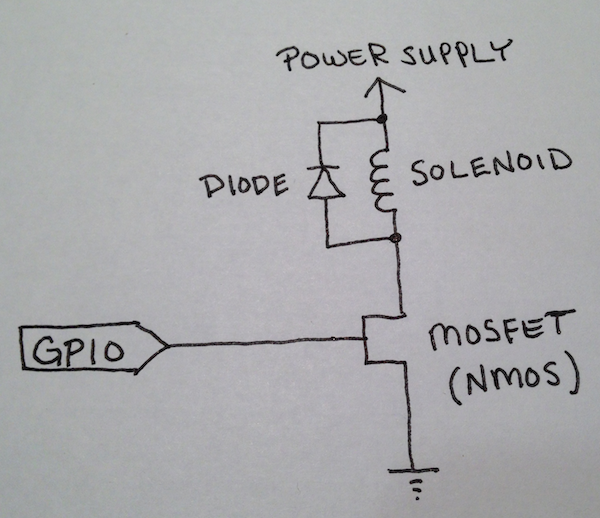 POWER SUPPLY
DIODE
SOLENOID
GPIO
MOSFET
(NMOS)